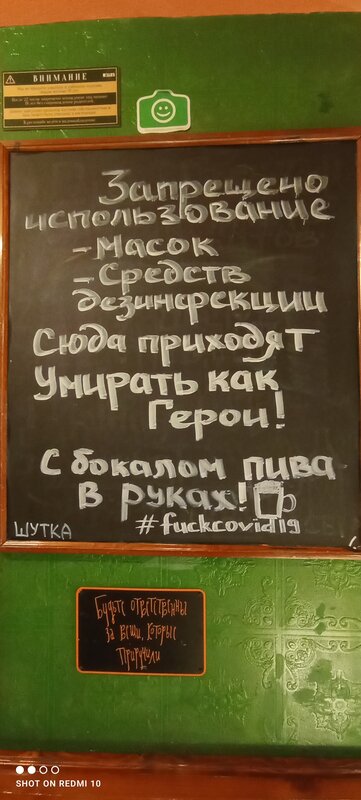 ВНИМАНИЕ
Запрещено
использование
- Масок
- Средств
дезинфекции
Сюда приходят
Умирать как
Герои!
С бокалом пива
в руках!
#fuckcovid19
ШУТКА
Будьте ответственны
за вещи, которые
приручили
SHOT ON REDMI 10